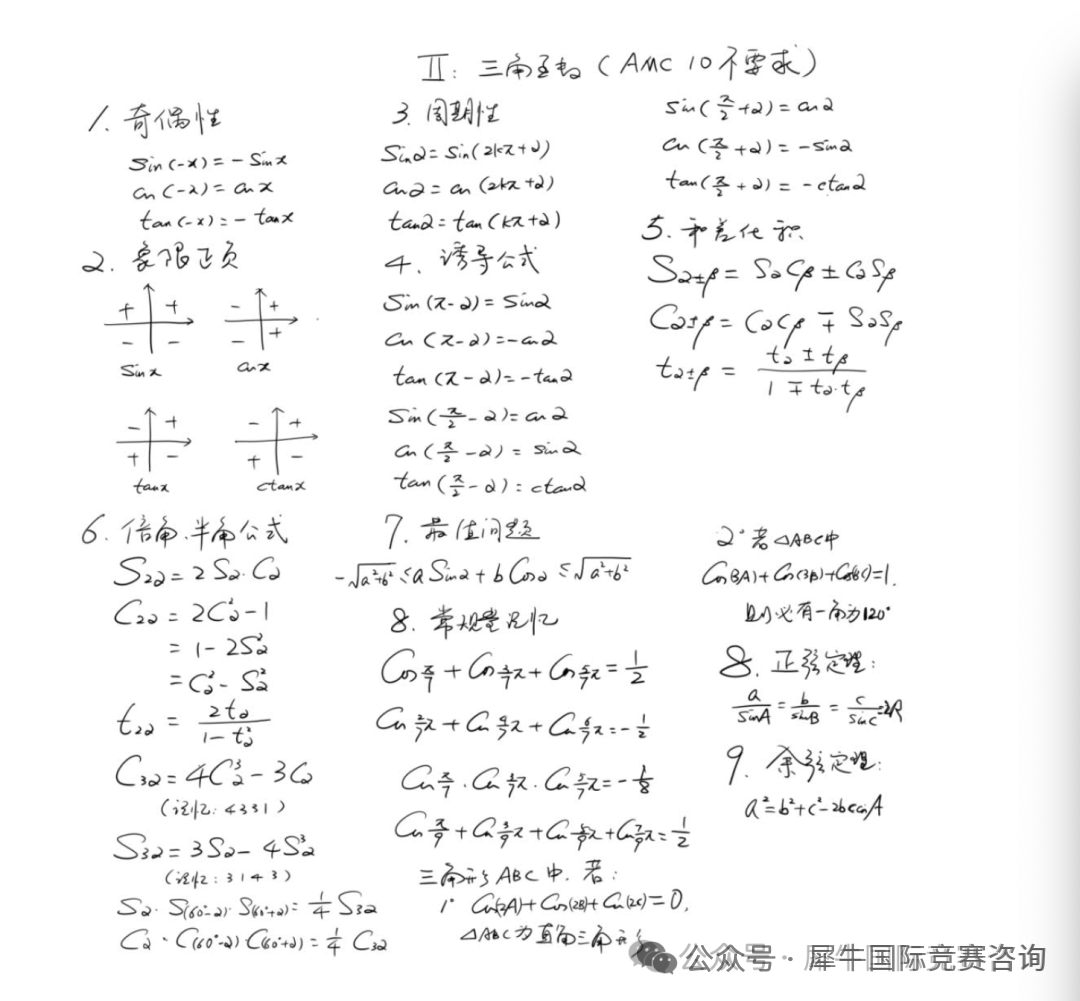 Ⅱ: 三角函数 (AMC 10不要求)
1. 奇偶性
sin(-x) = -sinx
cos(-α) = cosx
tan(-x) = -tanx
2. 象限正负
+ +
- -
sinx
- +
- +
cosx
- +
+ -
tanx
- +
+ -
ctanx
3. 周期性
sinα = sin(2kπ+α)
cosα = cos(2kπ+α)
tanα = tan(kπ+α)
4. 诱导公式
sin(π-α) = sinα
cos(π-α) = -cosα
tan(π-α) = -tanα
sin(π/2-α) = cosα
cos(π/2-α) = sinα
tan(π/2-α) = ctanα
sin(π/2+α) = cosα
cos(π/2+α) = -sinα
tan(π/2+α) = -ctanα
5. 和差化积
Sα±β = SαCβ ± CαSβ
Cα±β = CαCβ ∓ SαSβ
tα±β = (tα ± tβ)/(1 ∓ tα·tβ)
6. 倍角、半角公式
S2α = 2Sα·Cα
C2α = 2C²α - 1
= 1 - 2S²α
= C²α - S²α
t2α = 2tα/(1 - t²α)
C3α = 4C³α - 3Cα
(记忆: 4331)
S3α = 3Sα - 4S³α
(记忆: 3143)
Sα·S(60°-α)·S(60°+α) = 1/4 S3α
Cα·C(60°-α)·C(60°+α) = 1/4 C3α
7. 最值问题
-√(a²+b²) ≤ a Sinα + b Cosα ≤ √(a²+b²)
8. 常规量记忆
Cos π/7 + Cos 3/7π + Cos 5/7π = 1/2
Cos 2/7π + Cos 4/7π + Cos 6/7π = -1/2
Cos π/7 · Cos 3/7π · Cos 5/7π = -1/8
Cos π/9 + Cos 3/9π + Cos 5/9π + Cos 7/9π = 1/2
三角形ABC中, 若:
1° Cos(2A) + Cos(2B) + Cos(2C) = 0,
△ABC为直角三角形
2° 若△ABC中
Cos(3A) + Cos(3B) + Cos(3C) = 1.
则必有一角为120°
8. 正弦定理:
a/sinA = b/sinB = c/sinC = 2R
9. 余弦定理:
a² = b² + c² - 2bccosA
公众号 · 犀牛国际竞赛咨询